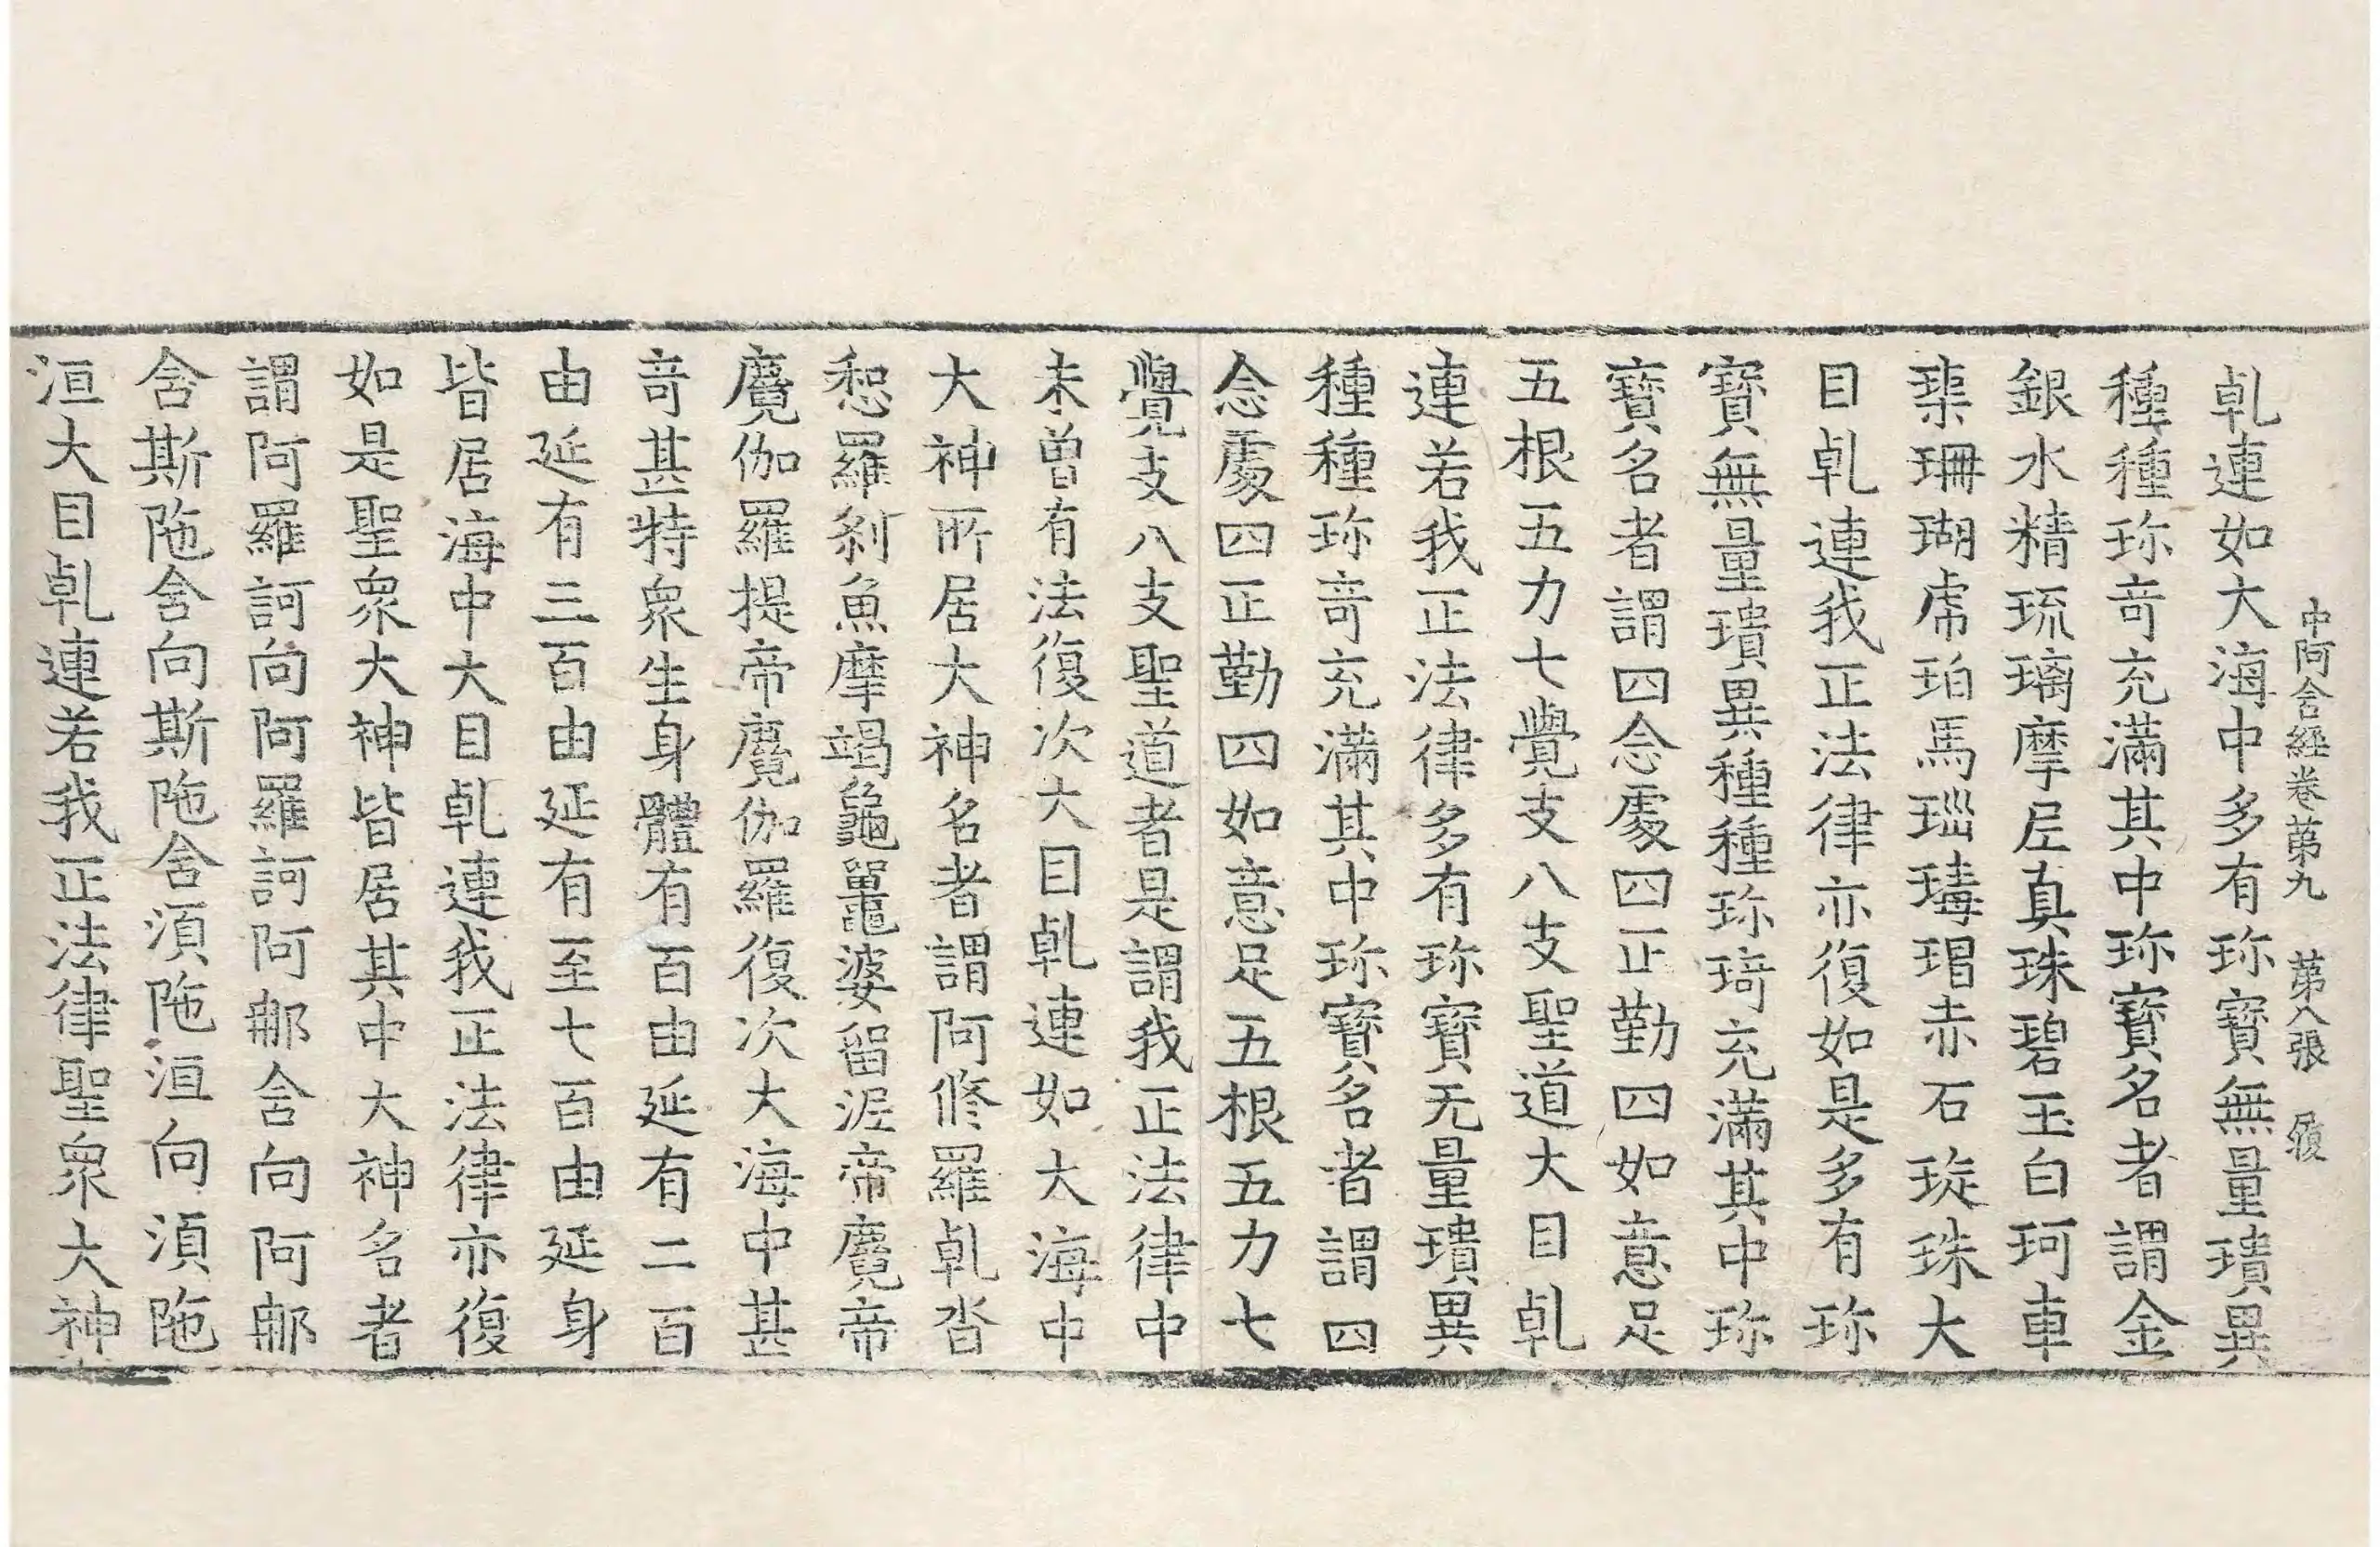 中阿含經卷第九 第八張 履
乹連如大海中多有珎寶無量璝異
種種珎竒充滿其中珎寶名者謂金
銀水精琉璃摩尼真珠碧玉白珂車
璖珊瑚虎珀馬瑙瑇瑁赤石琁珠大
目乹連我正法律亦復如是多有珎
寶無量璝異種種珎琦充滿其中珎
寶名者謂四念處四正勤四如意足
五根五力七覺支八支聖道大目乹
連若我正法律多有珎寶无量璝異
種種珎竒充滿其中珎寶名者謂四
念處四正勤四如意足五根五力七
覺支八支聖道者是謂我正法律中
未曽有法復次大目乹連如大海中
大神所居大神名者謂阿修羅乹沓
惒羅刹魚摩竭龜鼉婆留泥帝麑帝
麑伽羅提帝麑伽羅復次大海中甚
竒甚特衆生身體有百由延有二百
由延有三百由延有至七百由延身
皆居海中大目乹連我正法律亦復
如是聖衆大神皆居其中大神名者
謂阿羅訶向阿羅訶阿那含向阿那
含斯陁含向斯陁含湏陁洹向湏陁
洹大目乹連若我正法律聖衆大神